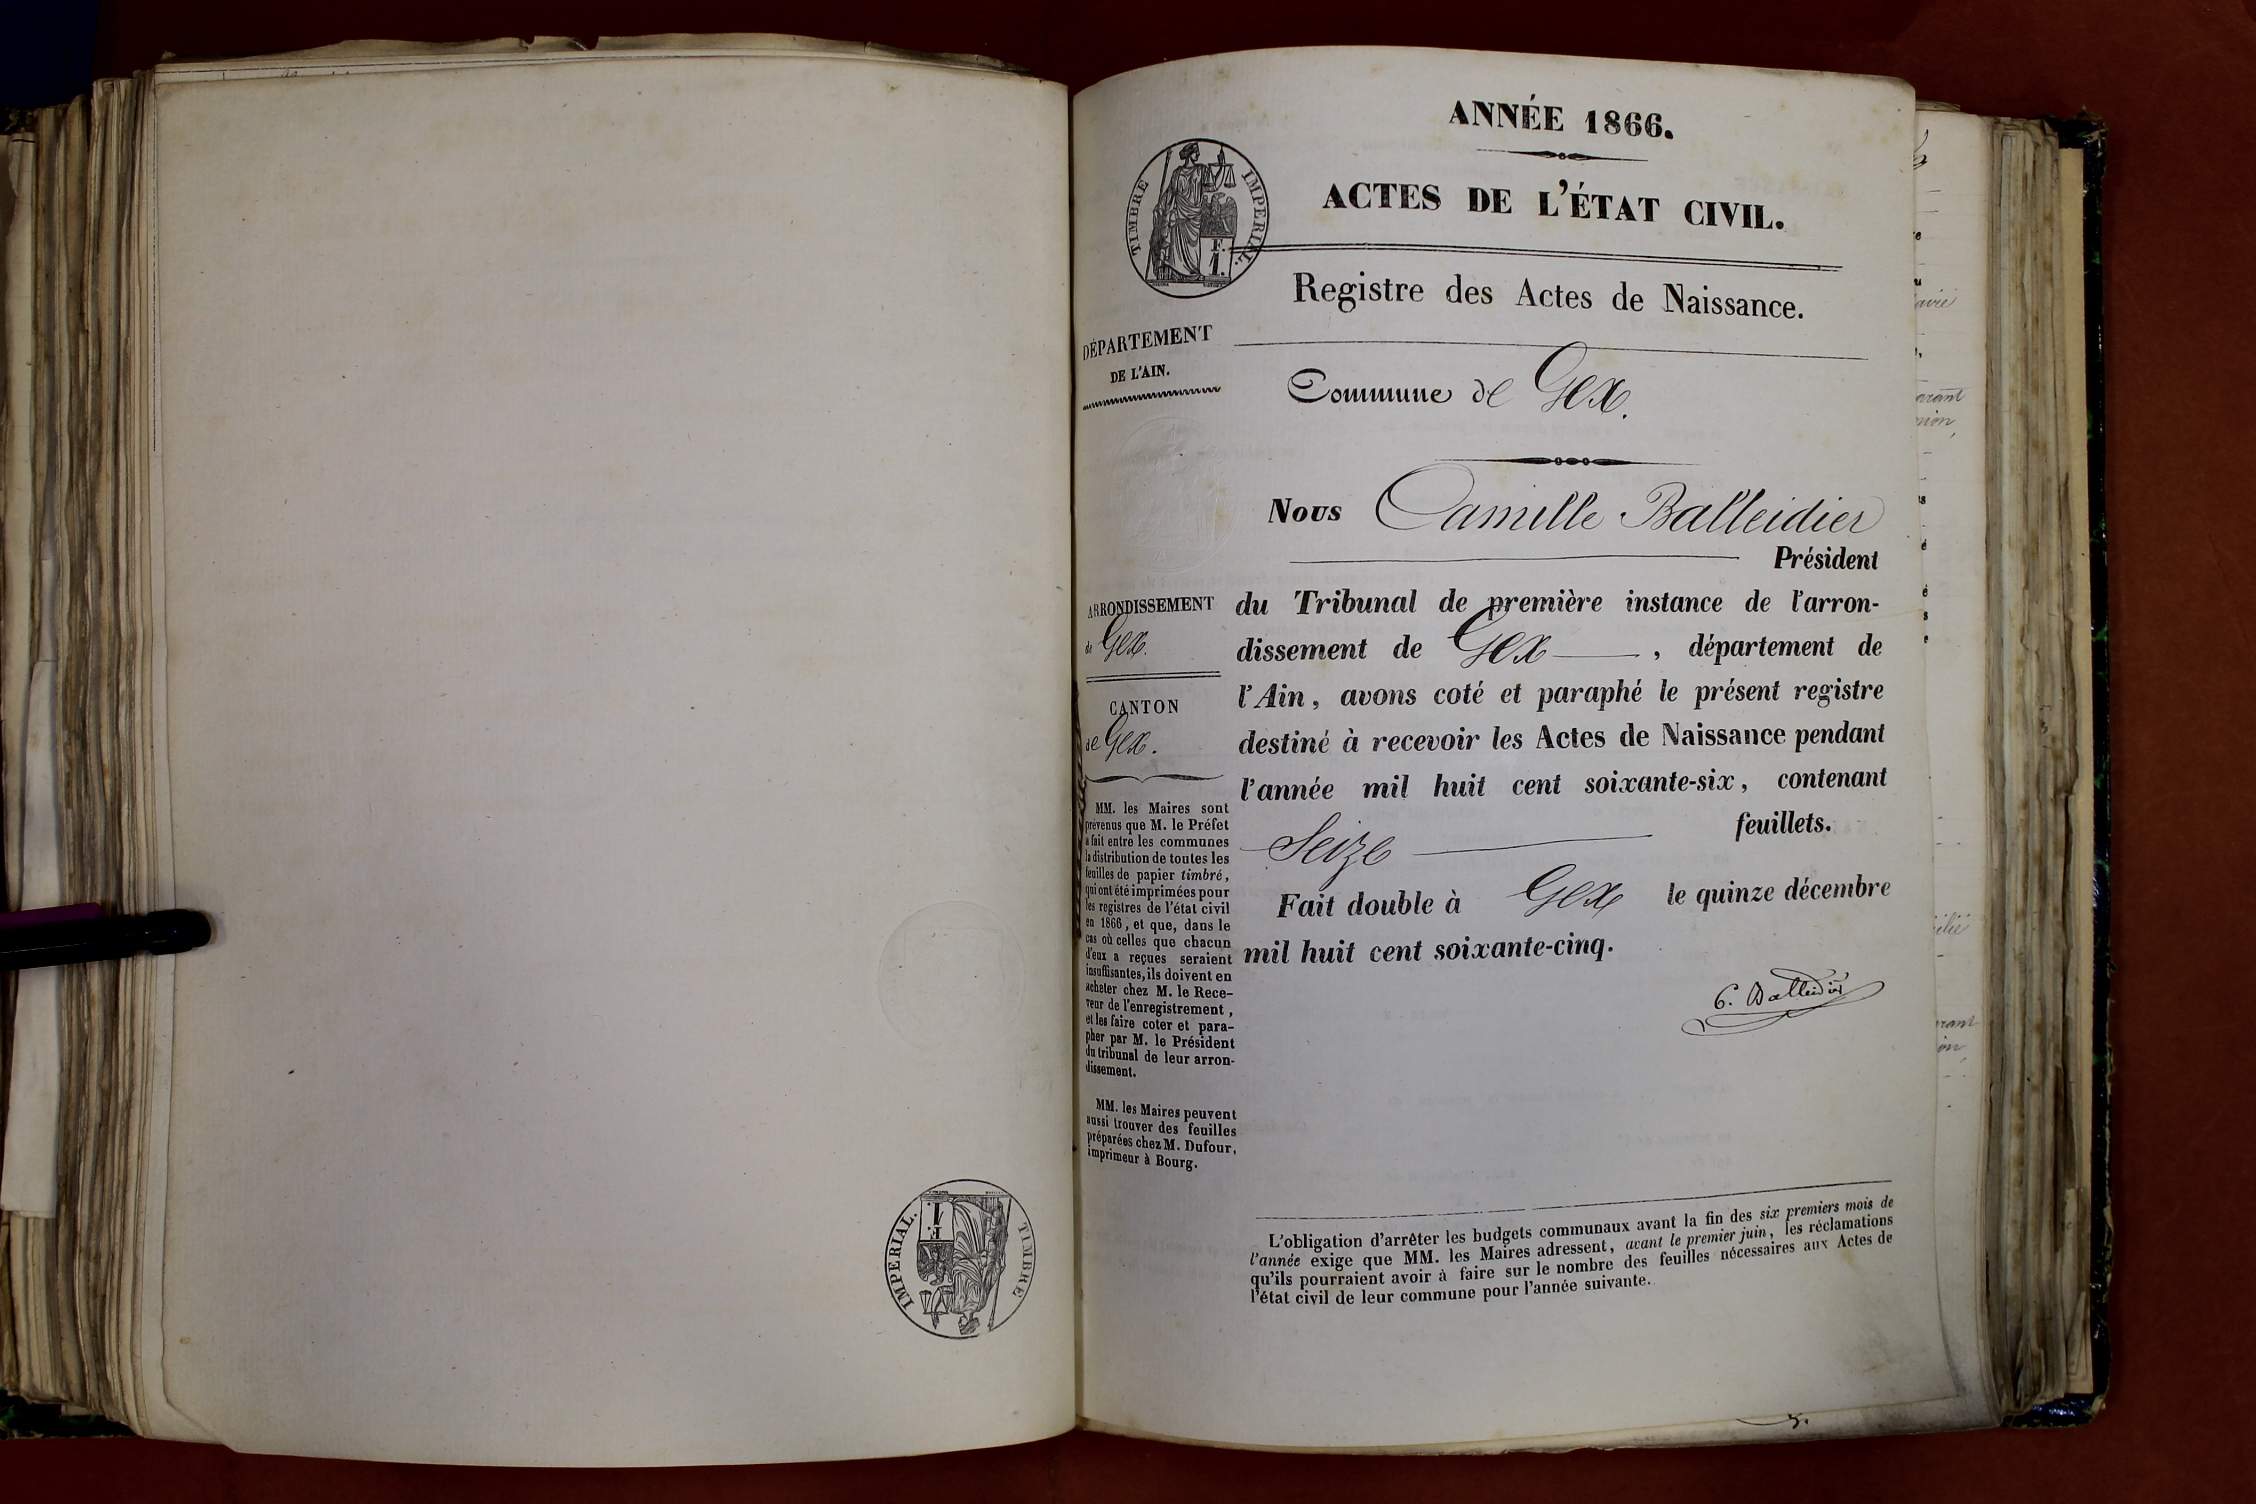 ANNÉE 1866.
ACTES DE L'ÉTAT CIVIL.
TIMBRE IMPERIAL.
F.
1.
Registre des Actes de Naissance.
DÉPARTEMENT
DE L'AIN.
Commune de Gex.
Nous Camille Balleidier
Président
ARRONDISSEMENT
de Gex.
CANTON
de Gex.
du Tribunal de première instance de l'arron-
dissement de Gex , département de
l'Ain, avons coté et paraphé le présent registre
destiné à recevoir les Actes de Naissance pendant
l'année mil huit cent soixante-six, contenant
Seize feuillets.
Fait double à Gex le quinze décembre
mil huit cent soixante-cinq.
C. Balleidier
MM. les Maires sont
prévenus que M. le Préfet
a fait entre les communes
la distribution de toutes les
feuilles de papier timbré,
qui ont été imprimées pour
les registres de l'état civil
en 1866, et que, dans le
cas où celles que chacun
d'eux a reçues seraient
insuffisantes, ils doivent en
acheter chez M. le Rece-
veur de l'enregistrement,
et les faire coter et para-
pher par M. le Président
du tribunal de leur arron-
dissement.
MM. les Maires peuvent
aussi trouver des feuilles
préparées chez M. Dufour,
imprimeur à Bourg.
L'obligation d'arrêter les budgets communaux avant la fin des six premiers mois de
l'année exige que MM. les Maires adressent, avant le premier juin, les réclamations
qu'ils pourraient avoir à faire sur le nombre des feuilles nécessaires aux Actes de
l'état civil de leur commune pour l'année suivante.
TIMBRE IMPERIAL.
F.
1.